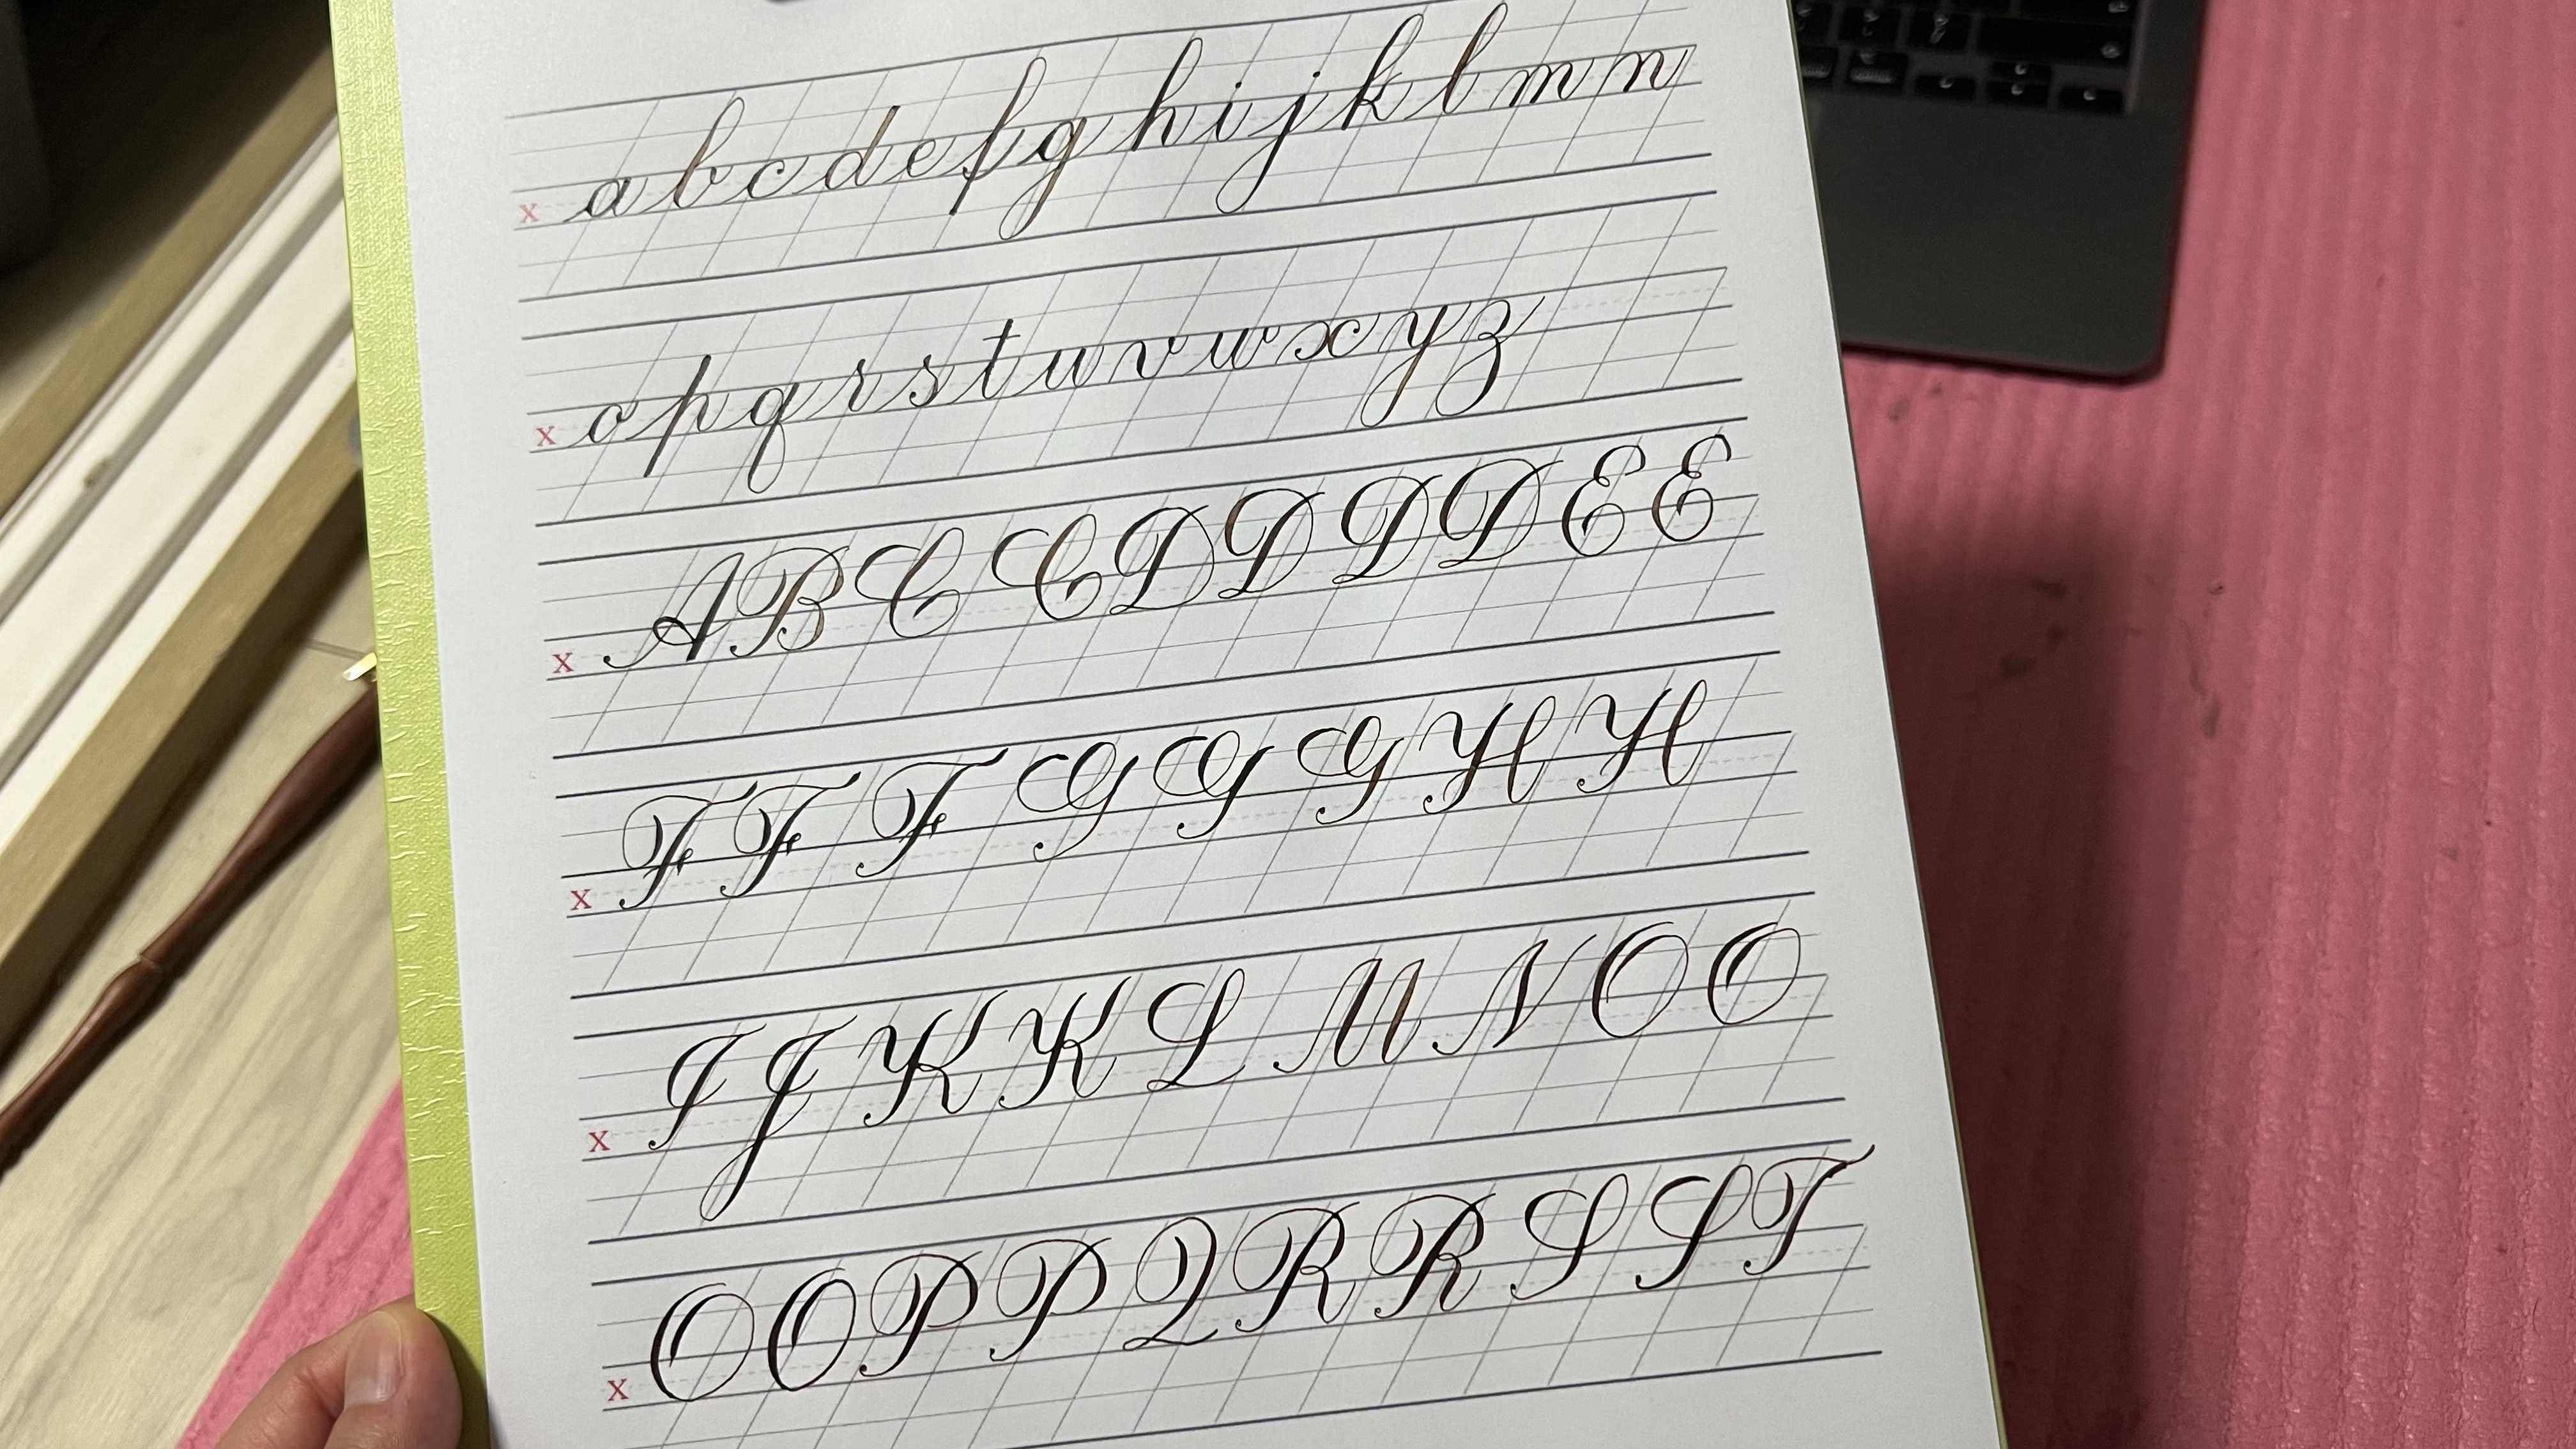 x a b c d e f g h i j k l m n
x o p q r s t u v w x y z
x A B C C D D D D E E
x F F F G G G H H
x I J K K L M N O O
x O O P P Q R R S S T